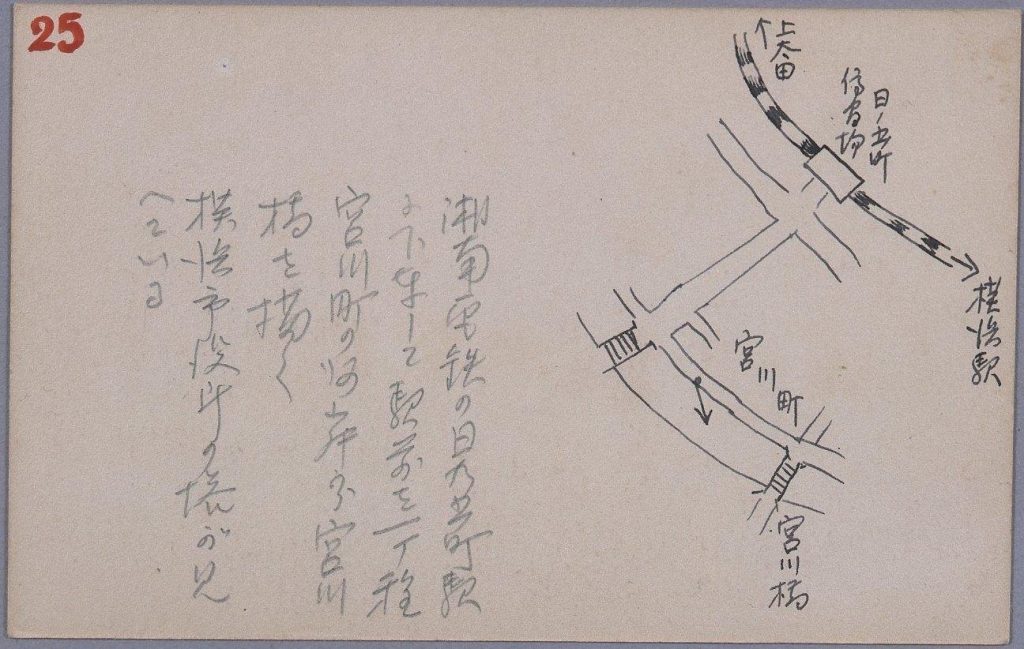 25
上大田
日ノ出町
停車場
横浜駅
宮川町
宮川橋
湘南電鉄の日乃出町駅
に下車して駅前を一丁程
宮川町の河岸から宮川
橋を描く
横浜市役所の塔が見
へている